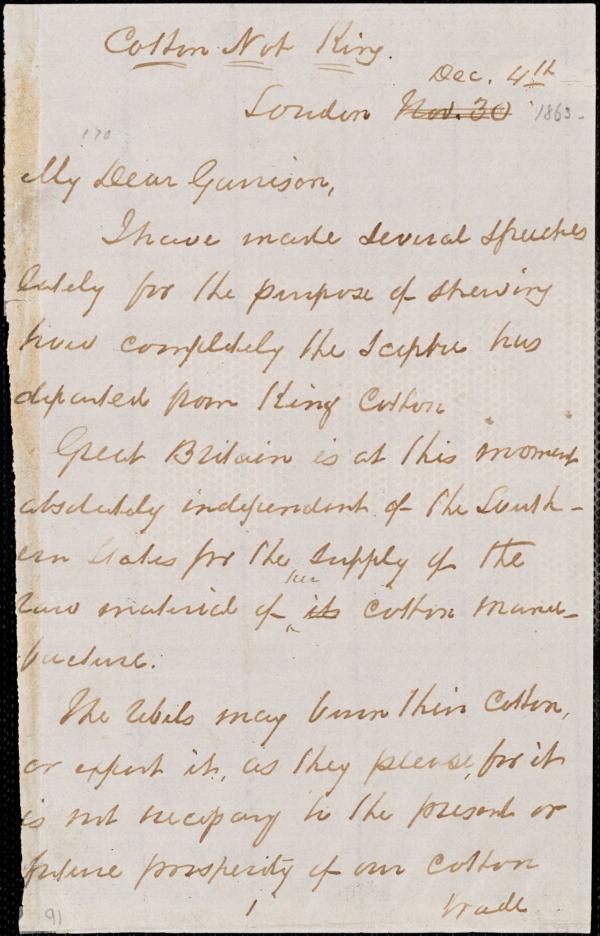 Cotton Not King.
Dec. 4th
London Nov. 30 1863-
170
My Dear Garrison,
I have made several speeches
lately for the purpose of shewing
how completely the sceptre has
departed from King Cotton
Great Britain is at this moment
absolutely independent of the South-
ern States for the supply of the
her
raw material of its cotton manu-
facture.
The rebels may burn their cotton,
or export it, as they please, for it
is not necessary to the present or
future prosperity of our cotton
trade
1
91